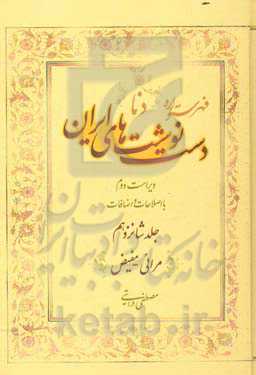 فهرستواره
دست نوشت های ایران
(دنا)
ویراست دوم
با اصلاحات و اضافات
جلد شانزدهم
مراثی - مفیض
مصطفی درایتی
خانه کتاب و ادبیات ایران
ketab.ir